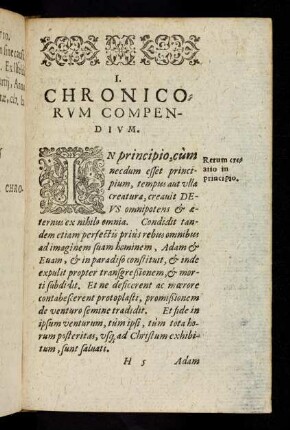 I.
CHRONICO-
RVM COMPEN-
DIVM.
IN principio, cùm
necdum esset princi-
pium, tempus aut vlla
creatura, creauit DE-
VS omnipotens & æ-
ternus ex nihilo omnia. Condidit tan-
dem etiam perfectis priùs rebus omnibus
ad imaginem suam hominem, Adam &
Euam, & in paradiso constituit, & inde
expulit propter transgressionem, & mor-
ti subdidit. Et ne desicerent ac mœrore
contabescerent protoplasti, promissionem
de venturo semine tradidit. Et fide in
ipsum venturum, tùm ipsi, tùm tota ho-
rum posteritas, vsq; ad Christum exhibi-
tum, sunt saluati.
H 5 Adam
Rerum cre-
atio in
principio.